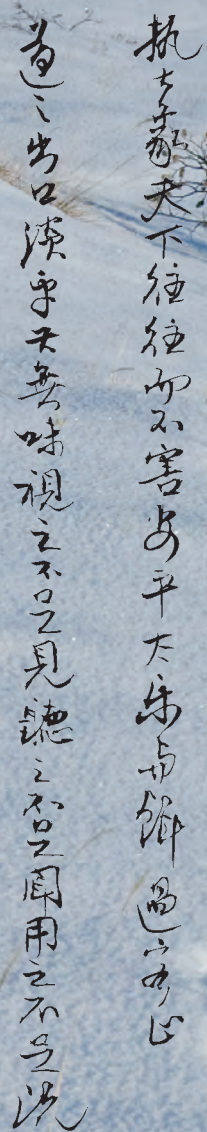 執大象天下往往而不害安平大乐与餌過客止
道之出口淡乎其無味視之不足見聽之不足聞用之不足既